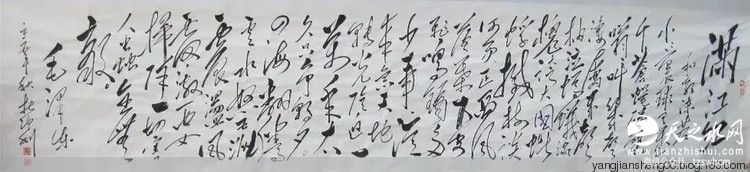 满江红
和郭沫若
小小寰球有
几个苍蝇碰壁
嗡嗡叫几声
凄厉几声
抽泣蚂蚁缘
槐夸大国蚍
蜉撼树谈
何易正西风
落叶下长安
飞鸣镝多
少事从
来急天地
转光阴迫一
万年太
久只争朝夕
四海翻腾
云水怒五洲
震荡风
雷激要
扫除一切害
人虫全无
敌
毛泽东
天之水网
www.tianzhishui.com
yangjiansheng00.blog.163.com